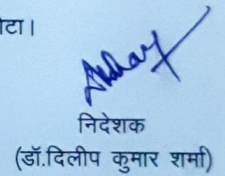 टा।
निदेशक
(डॉ.दिलीप कुमार शर्मा)